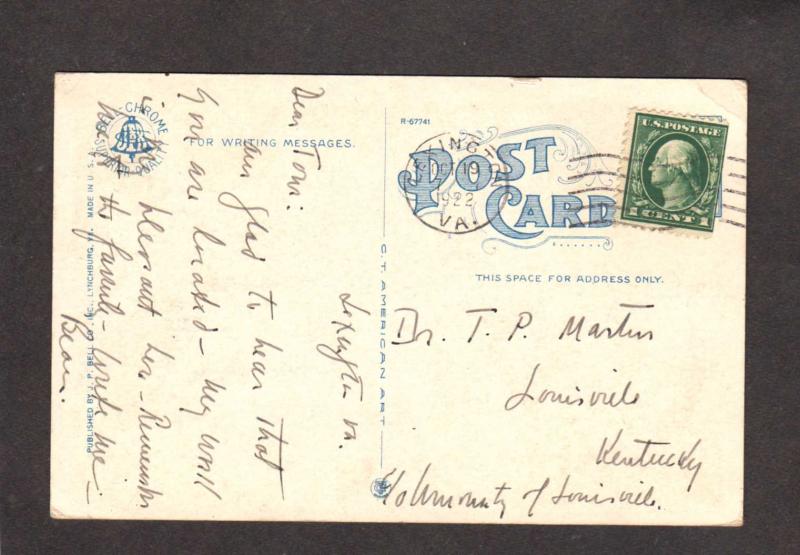 R-67741
POST CARD
FOR WRITING MESSAGES.
THIS SPACE FOR ADDRESS ONLY.
LEXINGTON
OCT 19
1922
VA.
U.S. POSTAGE
1 CENT 1
Lexington Va.
Dear Tom:
I am glad to hear that
you are located - My wall
is pleasant here - Remember
me to the family - Write me -
Bean.
Dr. T. P. Martin
Louisville
Kentucky
℅ University of Louisville.
C.T. AMERICAN ART
CHROME
SUPERIOR QUALITY
PUBLISHED BY J. P. BELL CO. INC., LYNCHBURG, VA. MADE IN U.S.A.